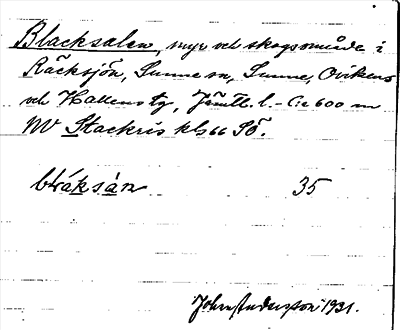 Blacksalen, myr och skogsområde i
Räcksjön, Sunne sn, Sunne, Ovikens
och Hallens tg, Jämtl. l. - C:a 600 m
NV Stackris kls 66 SÖ.
bláksàn 35
John Andersson 1931.